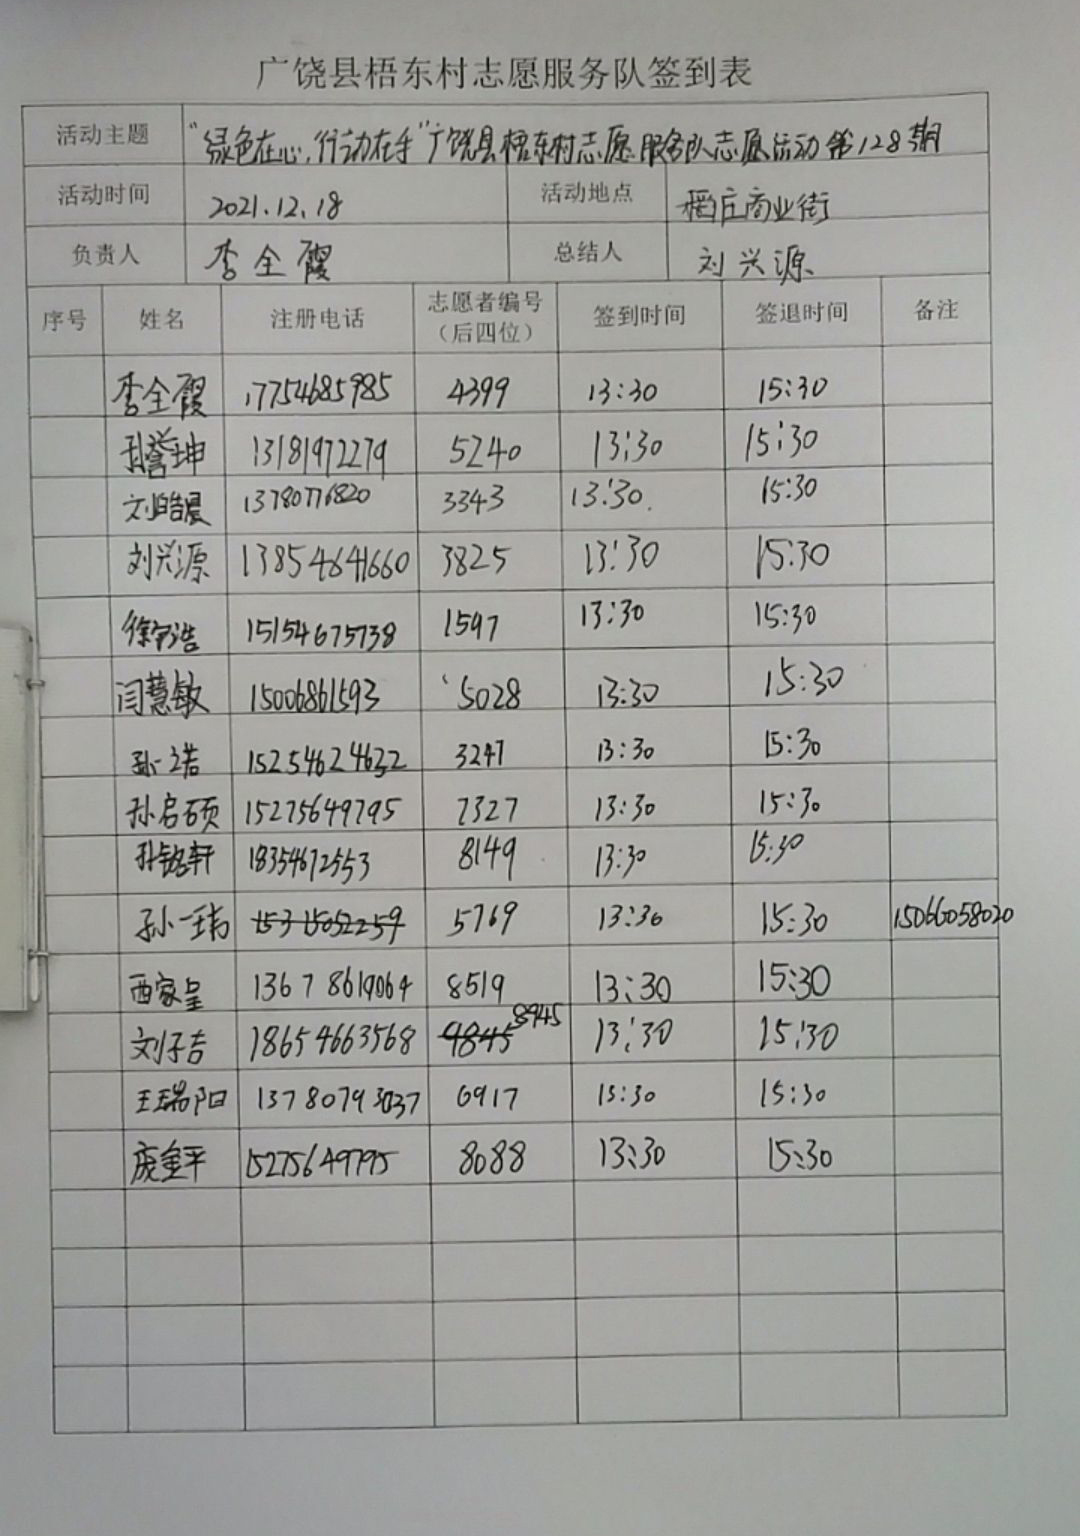 广饶县梧东村志愿服务队签到表
活动主题 “绿色在心,行动在手”广饶县梧东村志愿服务队志愿活动第128期
活动时间 2021.12.18 活动地点 稻庄商业街
负责人 李全霞 总结人 刘兴源
序号 姓名 注册电话 志愿者编号（后四位） 签到时间 签退时间 备注
李全霞 17754685985 4399 13:30 15:30
孙誉坤 13181972279 5240 13:30 15:30
刘皓晨 13780776820 3343 13:30. 15:30
刘兴源 13854641660 3825 13:30 15:30
15154675738 1597 13:30 15:30
闫慧敏 15006861593 5028 13:30 15:30
孙一诺 15254624632 3247 13:30 15:30
孙启硕 15275649795 7327 13:30 15:30
孙铭轩 18354672553 8149 13:30 15:30
孙一瑞 15315052259 5769 13:30 15:30 15066058020
西家皇 13678619064 8519 13:30 15:30
刘子吉 18654663568 9845 8945 13:30 15:30
王瑞阳 13780793037 6917 15:30 15:30
庞金平 15275649795 8088 13:30 15:30